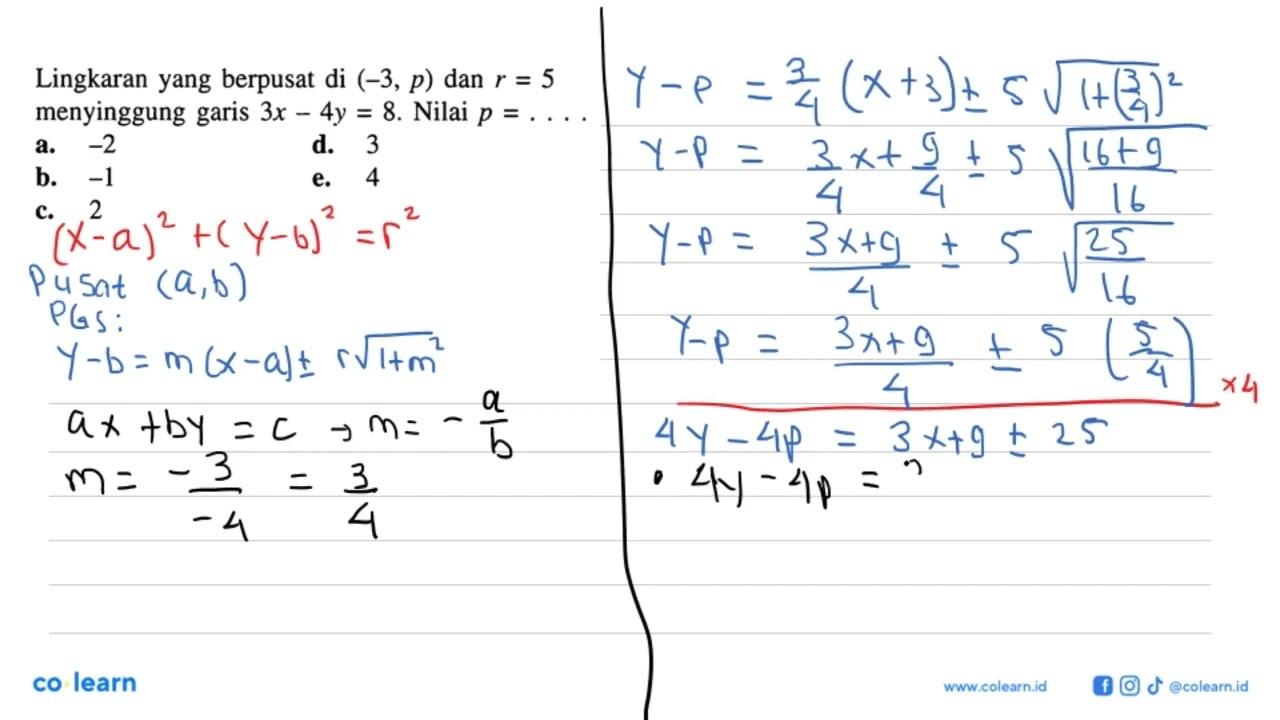 Lingkaran yang berpusat di (–3, p) dan r = 5
menyinggung garis 3x – 4y = 8. Nilai p = . . . .
a. –2
d. 3
b. –1
e. 4
c. 2
(x-a)² + (y-b)² = r²
Pusat (a,b)
PGS:
y-b = m(x-a) ± r√1+m²
ax + by = c → m = - a/b
m = -3/-4 = 3/4
y-p = 3/4 (x+3) ± 5 √1+(3/4)²
y-p = 3/4 x + 9/4 ± 5 √16+9/16
y-p = 3x+9/4 ± 5 √25/16
y-p = 3x+9/4 ± 5 (5/4)
×4
4y - 4p = 3x+9 ± 25
• 4y - 4p =
co learn
www.colearn.id
@colearn.id